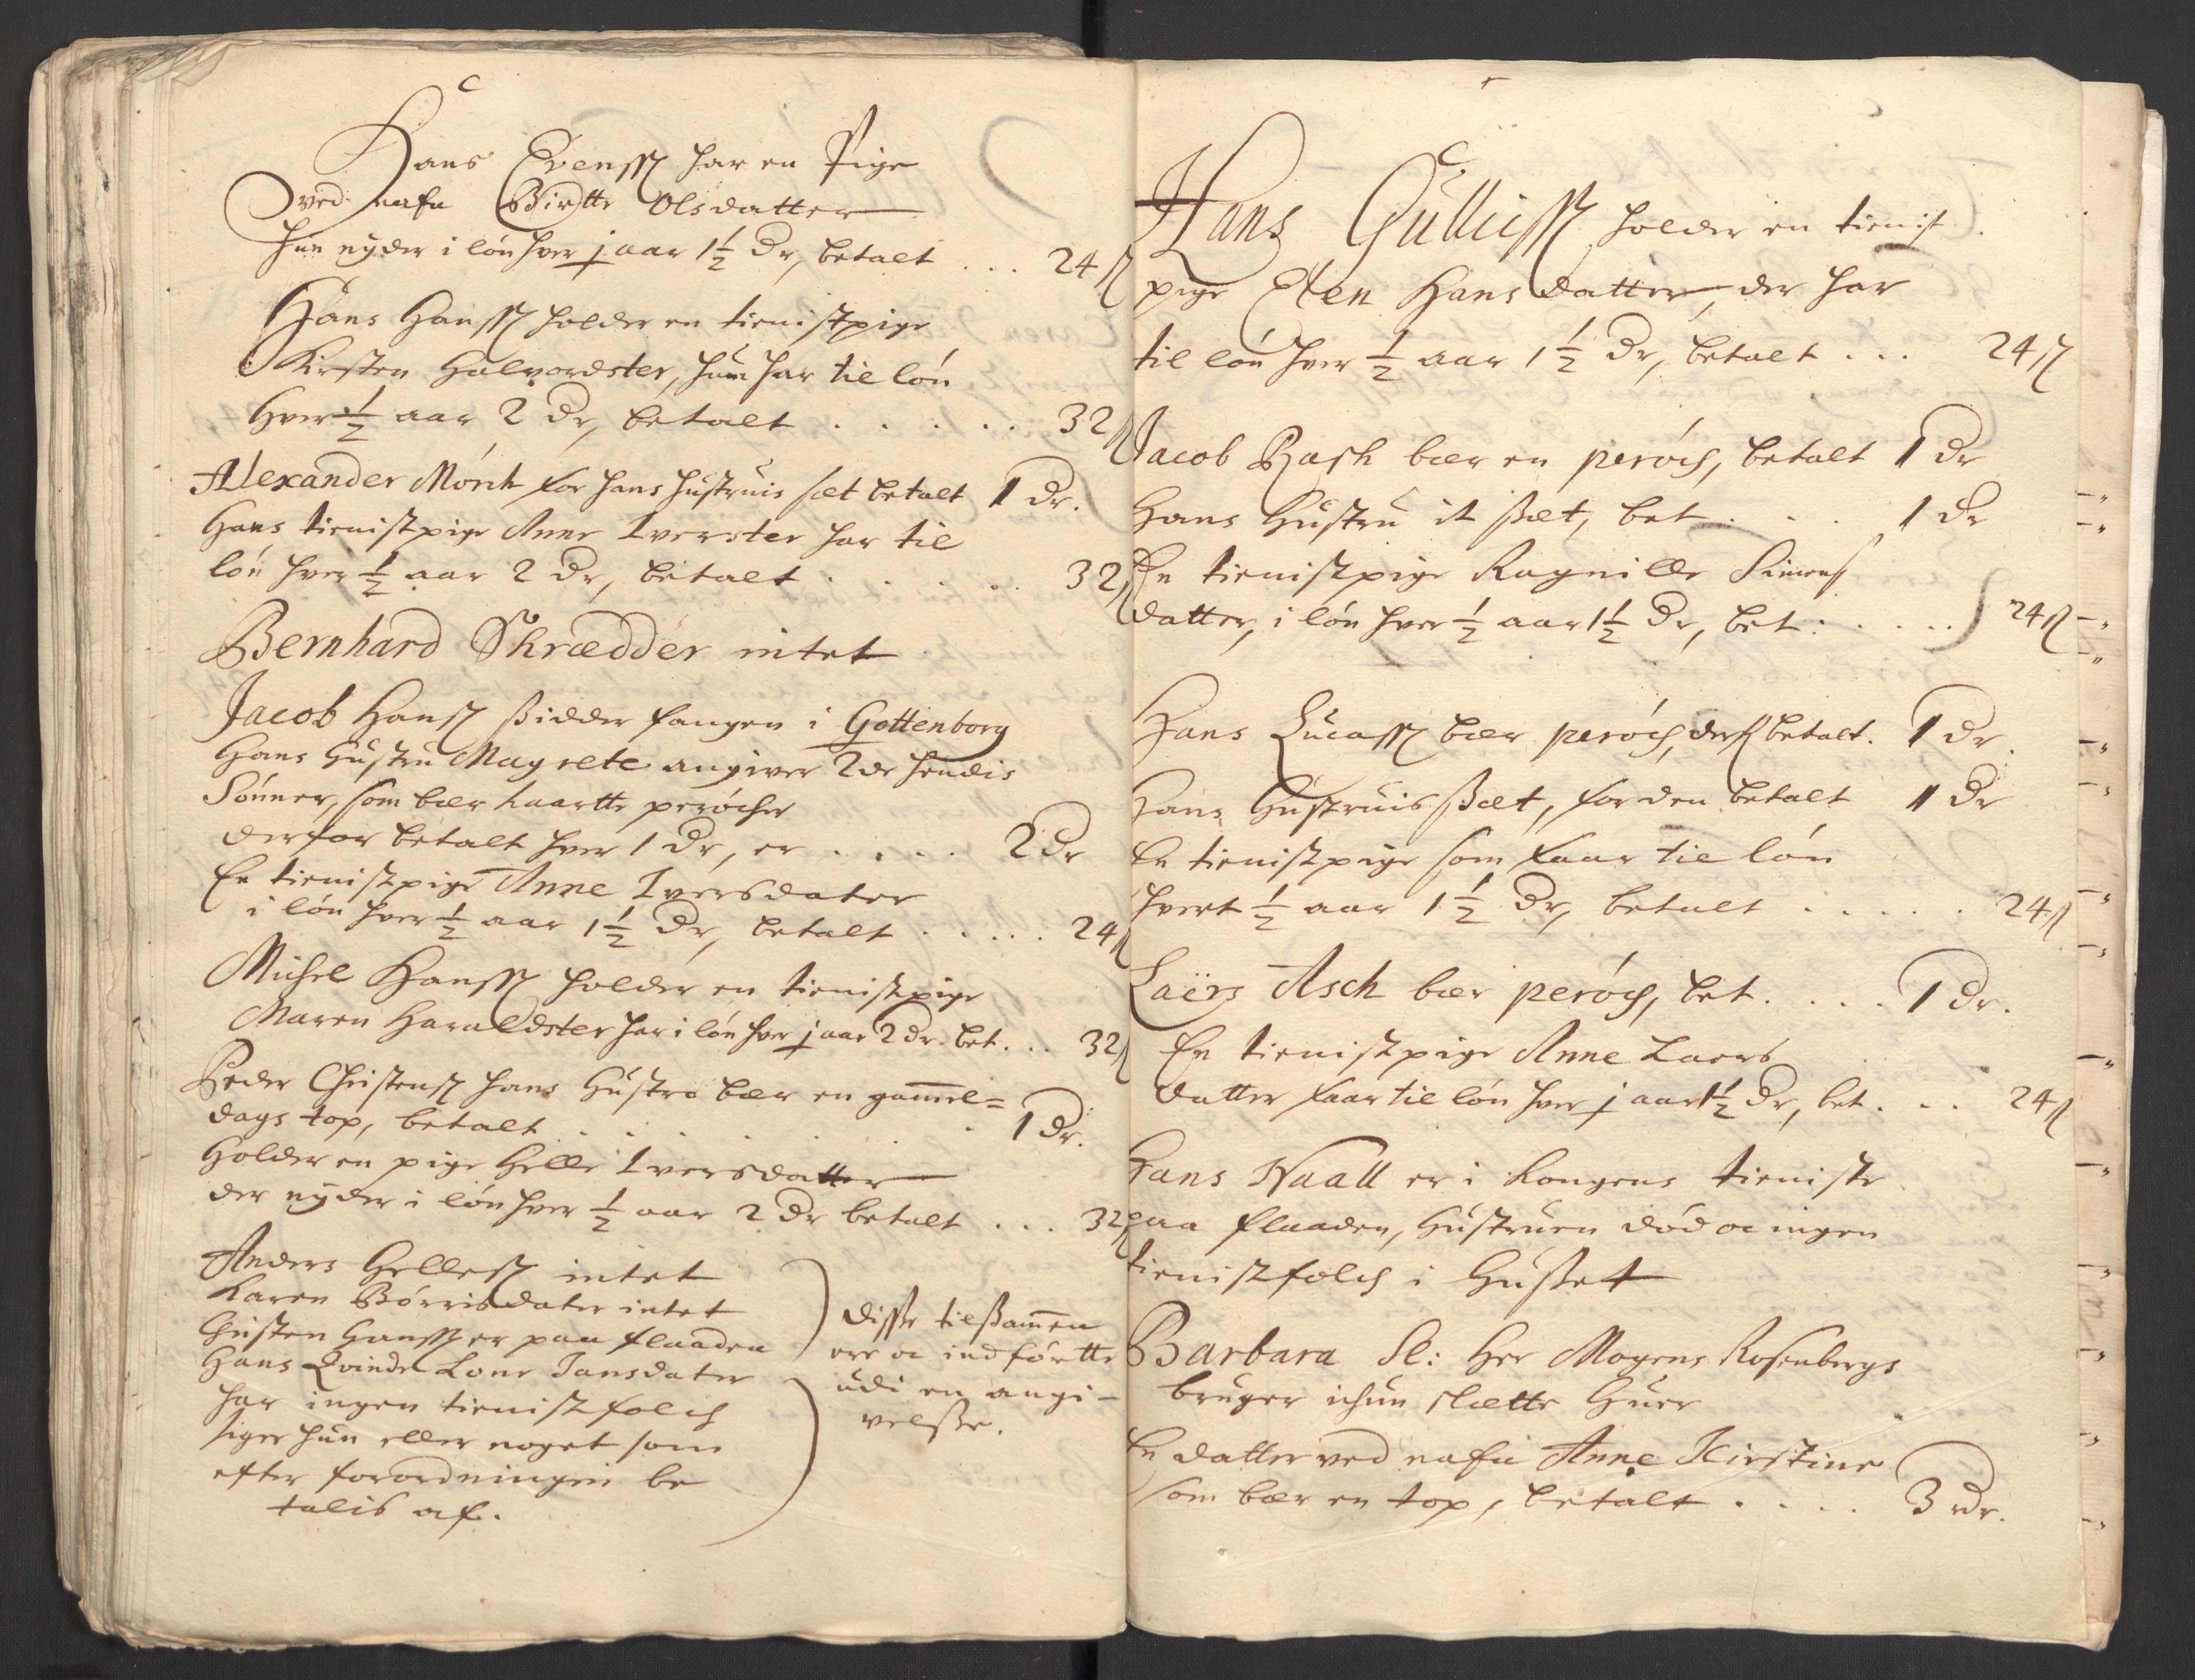 Hans Evenss har en Pige
ved nafn Birtte Olsdatter
hun nyder i løn hver j aar 1½ Dr, betalt . . . 24 ß
Hans Hanss holder en tienistpige
Kirsten Halvordster, hun har til løn
Hver ½ aar 2 Dr, betalt . . . . . 32 ß
Alexander Mönch for hans hustruis sæt betalt 1 Dr.
Hans tienistpige Anne Iverster har til
løn hver ½ aar 2 Dr, betalt . . . . . 32 ß
Bernhard Skrædder intet
Jacob Hanss sidder fangen i Gottenborg
Hans Hustru Magrete angiver 2de hendis
Sønner, som bær haartte perøcher
derfor betalt hver 1 Dr, er . . . . . 2 Dr
En tienistpige Anne Iversdater
i løn hver ½ aar 1½ Dr, betalt . . . . . 24 ß
Michel Hanss holder en tienistpige
Maren Haraldster har i løn hver j aar 2 Dr. bet. . . 32 ß
Peder Christenss hans Hustro bær en gam̄el=
dags top, betalt . . . . . . . . 1 Dr.
Holder en pige Helle Iversdatter
der nyder i løn hver ½ aar 2 Dr betalt . . . 32 ß
Anders Helless intet
Karen Børrisdater intet
Christen Hanss er paa flaaden
Hans Qvinde Lone Jansdater
har ingen tienistfolch
siger hun eller noget som
efter forordningen be
talis af.
disse tilsam̄en
ere oc indførtte
udi en angi-
velsse.
Hans Gulliss holder en tienist
pige Elen Hansdatter, der har
til løn hver ½ aar 1½ Dr, betalt . . . 24 ß
Jacob Rash bær en perøch, betalt 1 Dr
Hans Hustru it sæt, bet . . . 1 Dr
En tienistpige Ragnille Simens
datter, i løn hver ½ aar 1½ Dr, bet: . . . . 24 ß
Hans Lucass bær perøch, derf betalt. 1 Dr.
Hans Hustruis sæt, for den betalt 1 Dr
En tienistpige som faar til løn
hvert ½ aar 1½ Dr, betalt . . . . . 24 ß
Laers Asch bær perøch, bet. . . . 1 Dr.
En tienistpige Anne Laers
datter faar til løn hver j aar 1½ Dr, bet. . . 24 ß
Hans Naall er i Kongens tieniste
paa flaaden, Hustruen død oc ingen
tienistfolch i Husset
Barbara Sl: Her Mogens Rosenbergs
bruger ichun slætte Huer
En datter ved nafn Anne Kirstine
som bær en top, betalt . . . . 3 Dr.